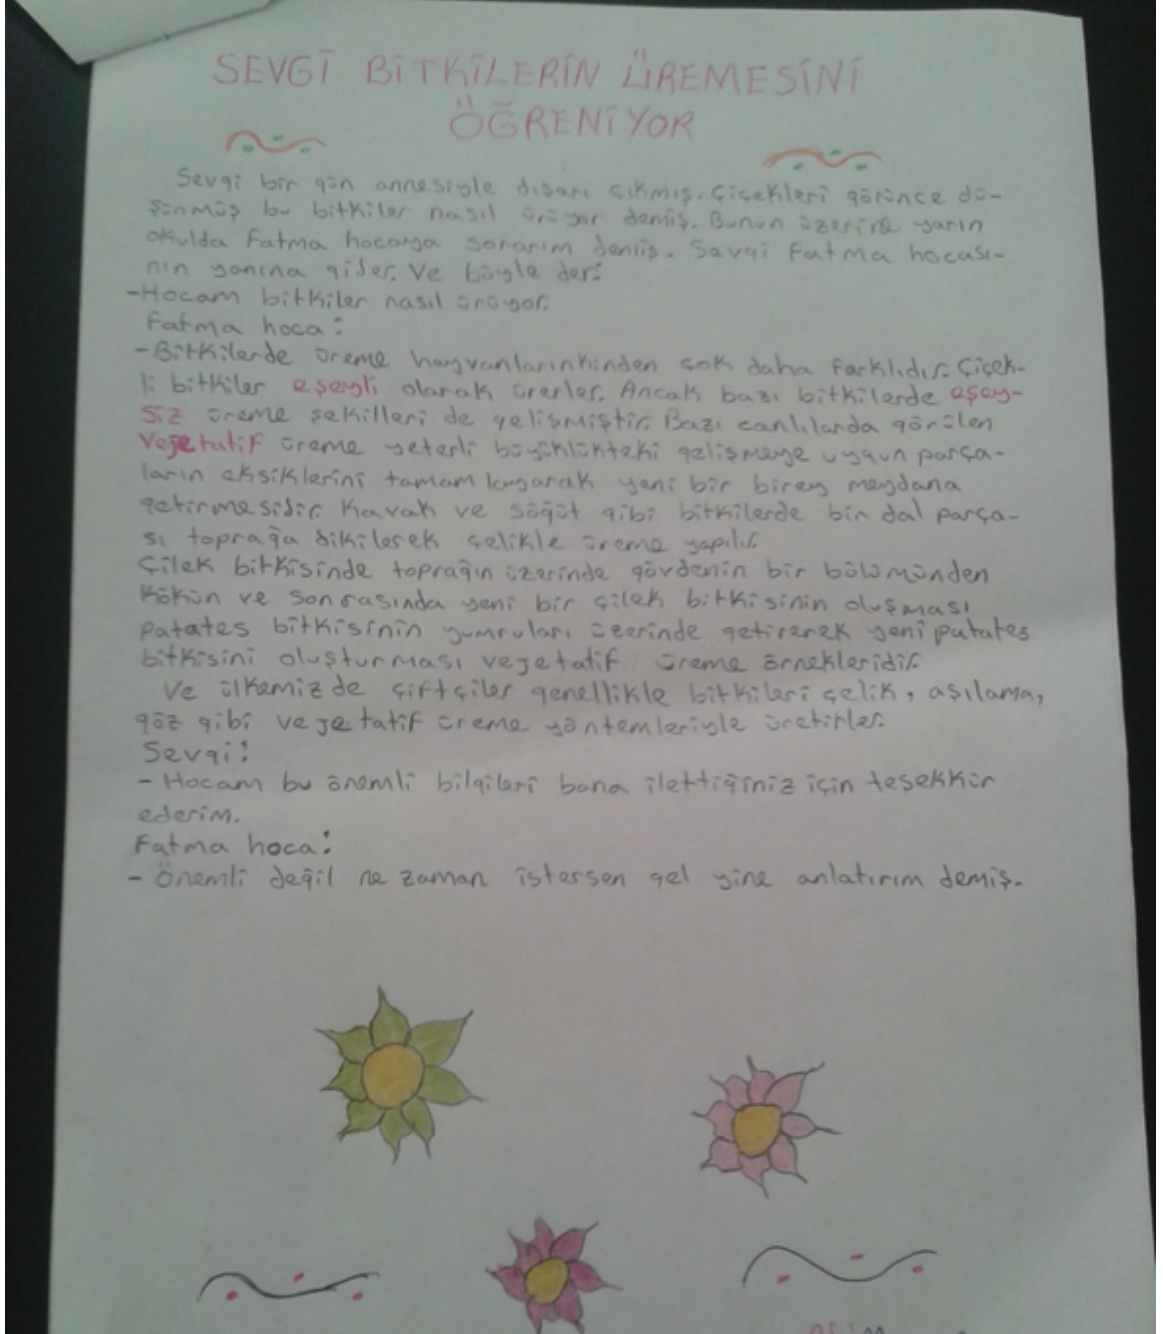 SEVGİ BİTKİLERİN ÜREMESİNİ
ÖĞRENİYOR
Sevgi bir gün annesiyle dışarı çıkmış. Çiçekleri görünce dü-
şünmüş bu bitkiler nasıl ürüyor demiş. Bunun üzerine yarın
okulda Fatma hocaya sorarım demiş. Sevgi Fatma hocası-
nın yanına gider. Ve böyle der:
-Hocam bitkiler nasıl ürüyor.
Fatma hoca:
-Bitkilerde üreme hayvanlarınkinden çok daha farklıdır. Çiçek-
li bitkiler eşeyli olarak ürerler. Ancak bazı bitkilerde eşey-
siz üreme şekilleri de gelişmiştir. Bazı canlılarda görülen
Vejetatif üreme yeterli büyüklükteki gelişmeye uygun parça-
ların eksiklerini tamamlayarak yeni bir birey meydana
getirmesidir. Kavak ve söğüt gibi bitkilerde bir dal parça-
sı toprağa dikilerek çelikle üreme yapılır.
Çilek bitkisinde toprağın üzerinde gövdenin bir bölümünden
kökün ve sonrasında yeni bir çilek bitkisinin oluşması
Patates bitkisinin yumruları üzerinde getirerek yeni patates
bitkisini oluşturması vejetatif üreme örnekleridir.
Ve ülkemizde çiftçiler genellikle bitkileri çelik, aşılama,
göz gibi vejetatif üreme yöntemleriyle üretirler.
Sevgi:
- Hocam bu önemli bilgileri bana ilettiğiniz için teşekkür
ederim.
Fatma hoca:
- Önemli değil ne zaman istersen gel yine anlatırım demiş.